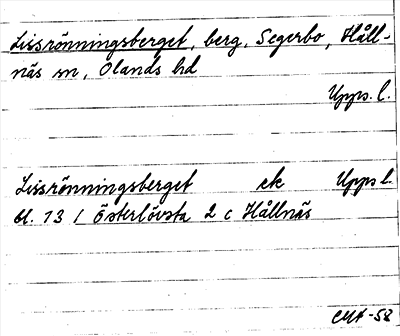 Lissrönningsberget, berg, Segerbo, Håll-
näs sn, Olands hd
Upps. l.
Lissrönningsberget ek Upps l.
bl. 13 / Österlövsta 2 c Hållnäs
-52